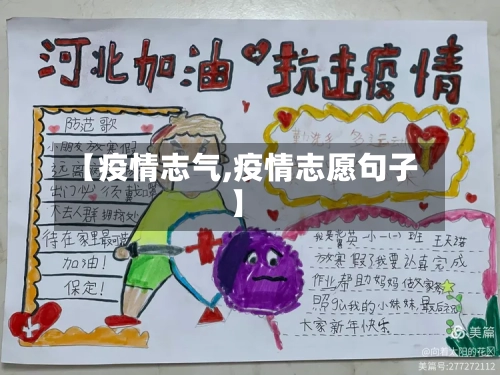 河北加油 抗击疫情
防范歌
小朋友放寒假
远离
出门必须戴
不去人群拥挤处
待在家里最可
加油！
保定！
勤洗手 多
【疫情志气,疫情志愿句子
】
我是 英一小一(一)班 王天
放寒假了我要认真完成
作业帮助妈妈做家务
照顾我的小妹妹,最后祝
大家新年快乐
美篇
@向着太阳的花
美篇号:277272112